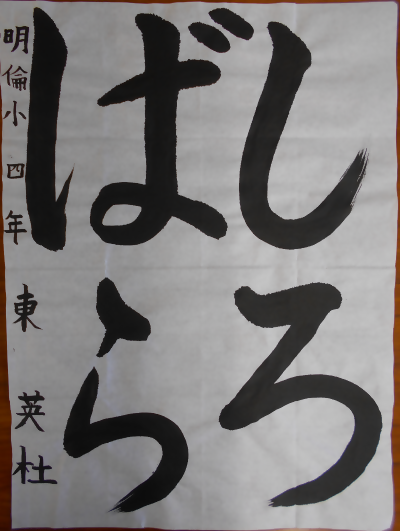 しろ
ばら
明倫小四年 東英杜